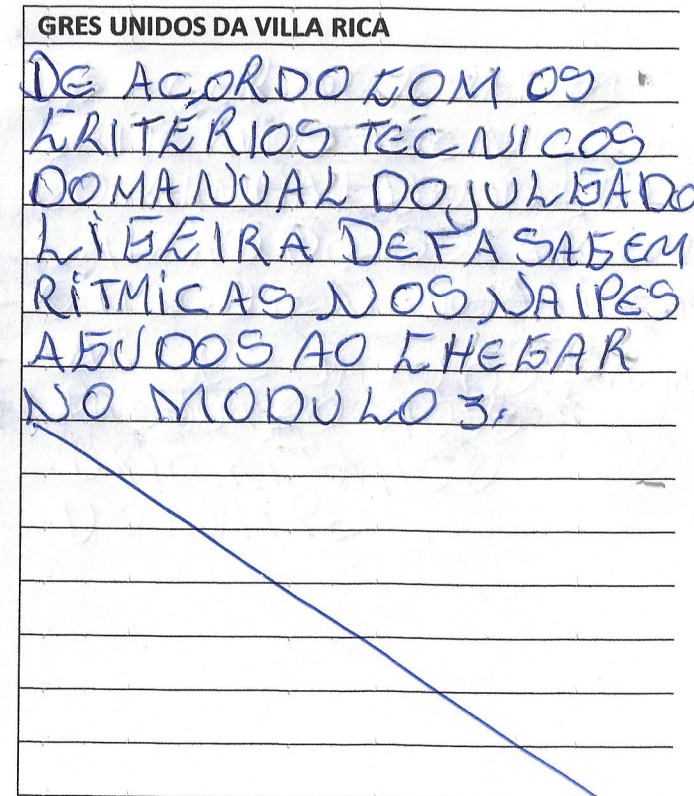 GRES UNIDOS DA VILLA RICA
DE ACORDO COM OS
CRITÉRIOS TÉCNICOS
DO MANUAL DO JULGADO
LIGEIRA DEFASAGEM
RÍTMICAS NOS NAIPES
AGUDOS AO CHEGAR
NO MODULO 3.